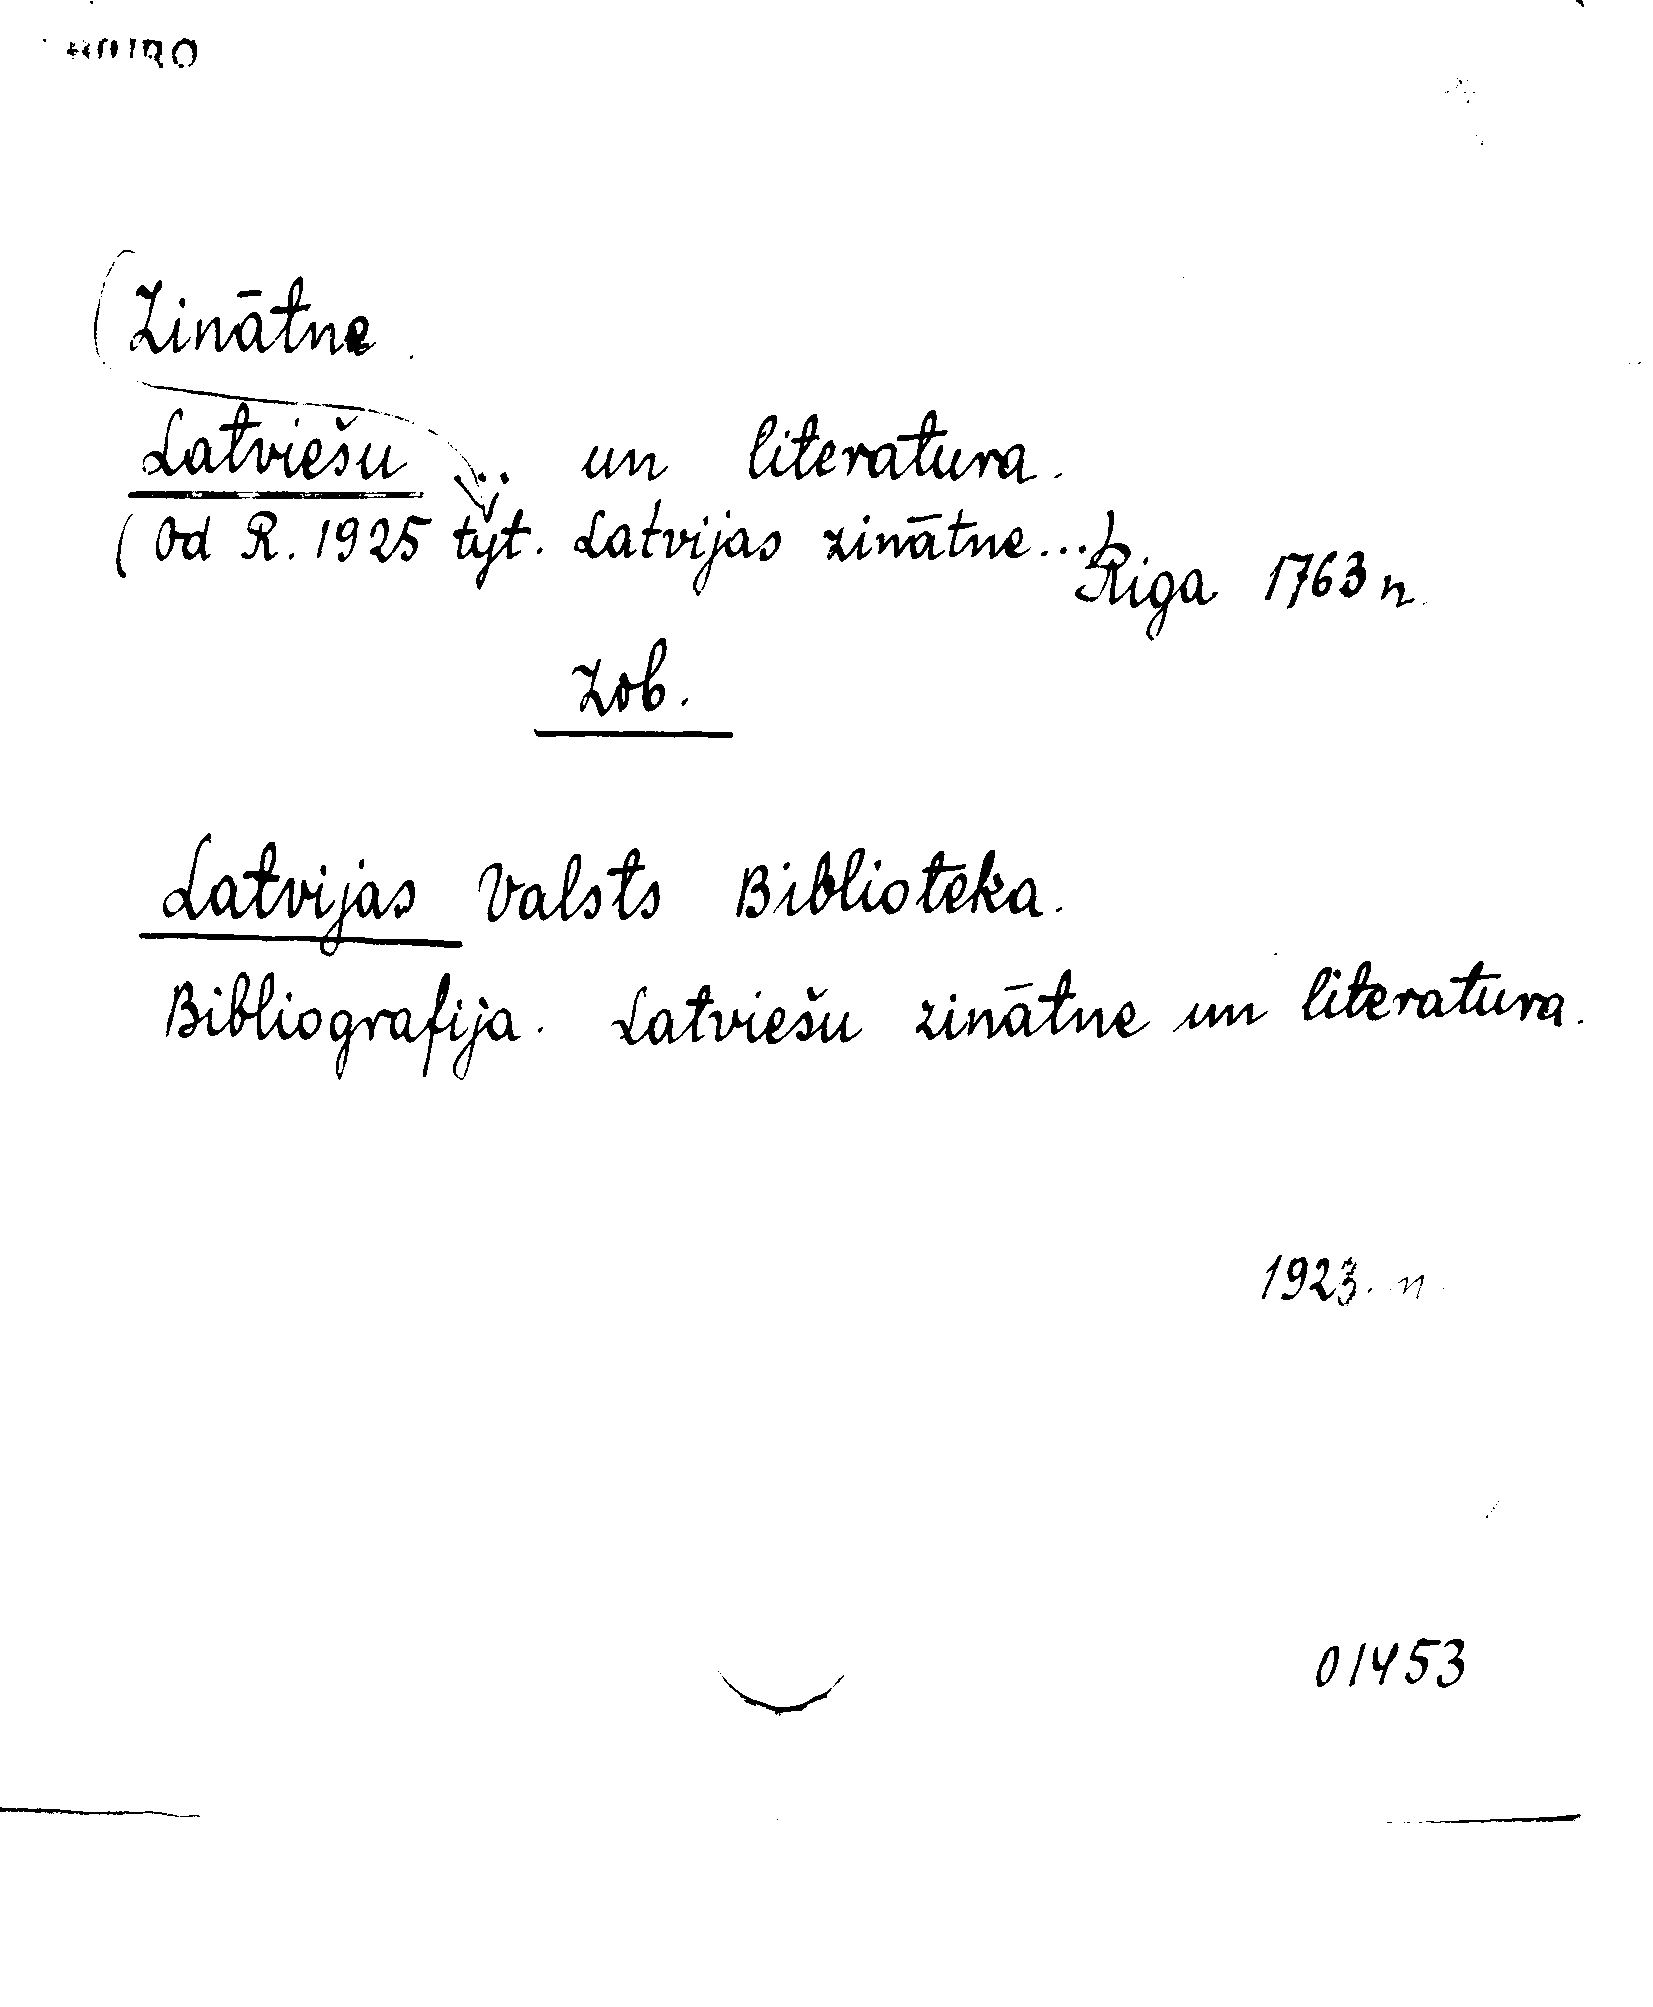 Zinātne
Latviešu ... un literatura.
(Od R. 1925 tyt. Latvijas zinātne...)
Riga 1763 n.
Zob.
Latvijas Valsts Biblioteka.
Bibliografija. Latviešu zinātne un literatura.
1923. n
01453